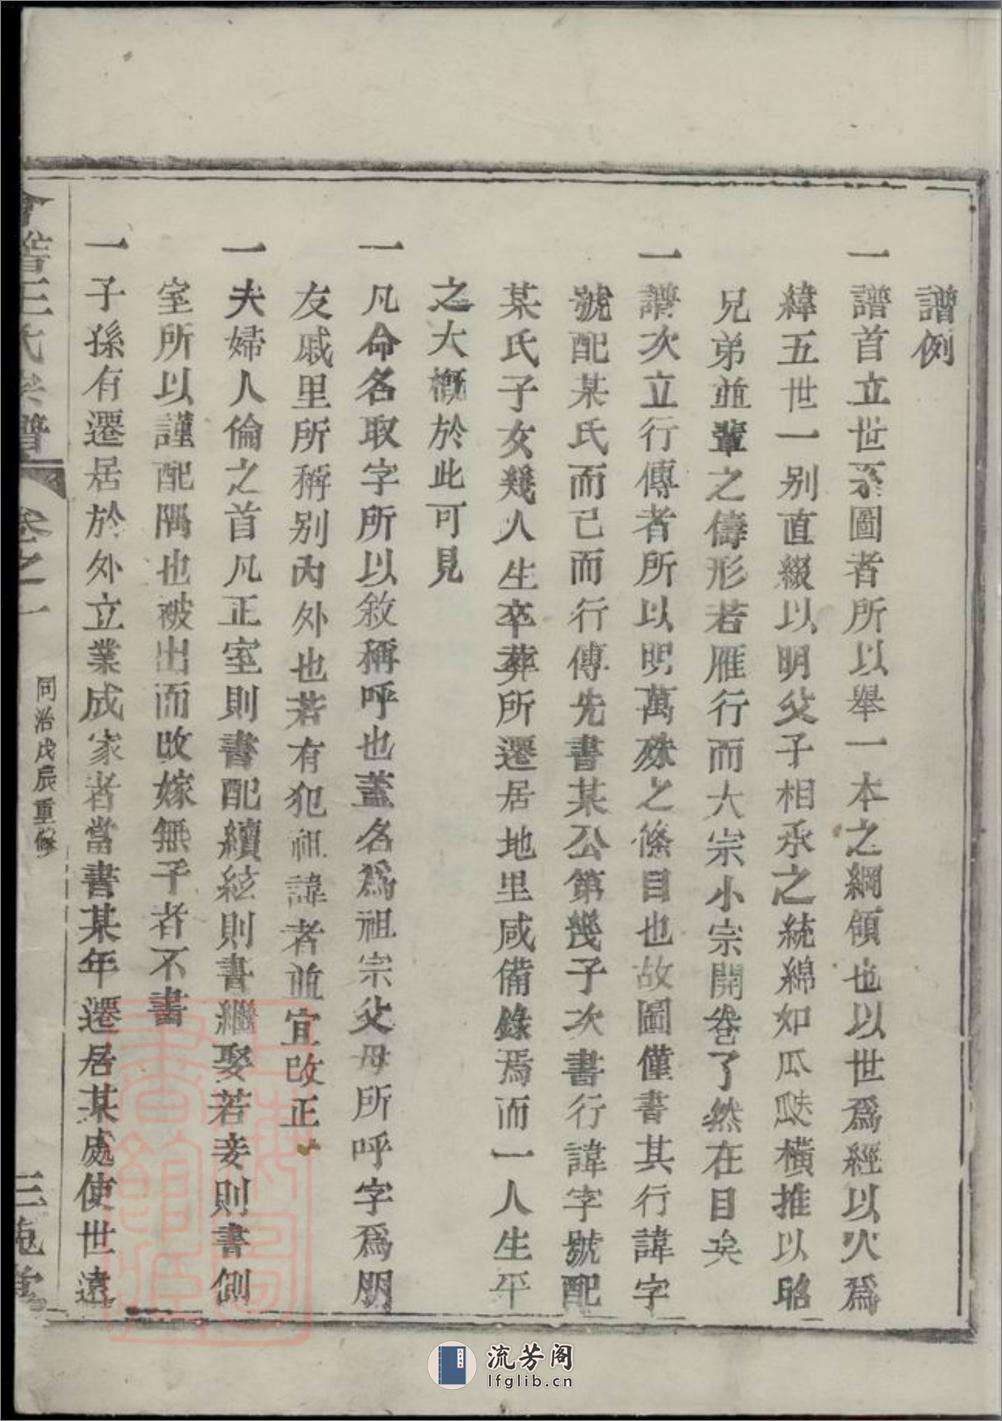 譜例
一譜首立世系圖者所以舉一本之綱領也以世爲經以人爲
緯五世一别直綴以明父子相承之統綿如瓜瓞橫推以昭
兄弟並輩之儔形若雁行而大宗小宗開卷了然在目矣
一譜次立行傳者所以明萬殊之條目也故圖僅書其行諱字
號配某氏而已而行傳先書某公第幾子次書行諱字號配
某氏子女幾人生卒葬所遷居地里咸備錄焉而一人生平
之大槪於此可見
一凡命名取字所以敘稱呼也蓋名爲祖宗父母所呼字爲朋
友戚里所稱别內外也若有犯祖諱者並宜改正
一夫婦人倫之首凡正室則書配續絃則書繼娶若妾則書側
室所以謹配隅也被出而改嫁無子者不書
一子孫有遷居於外立業成家者當書某年遷居某處使世遠
王氏宗譜 卷之一 同治戊辰重修 三槐堂
流芳阁
lfglib.cn